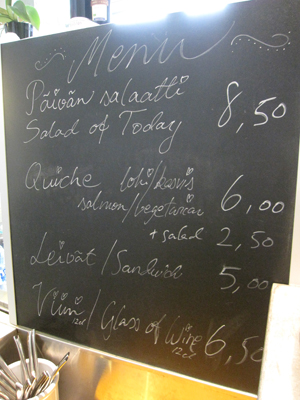 Menu
Päivän salaatti
Salad of Today 8,50
Quiche lohi/kasvis
salmon/vegetarian 6,00
+ salad 2,50
Leivät/Sandwich 5,00
Viini/Glass of Wine 6,50
12cl 12cl